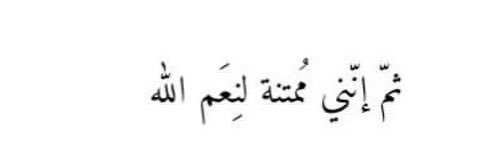 ثمّ إنّني مُمتنة لنِعَم الله